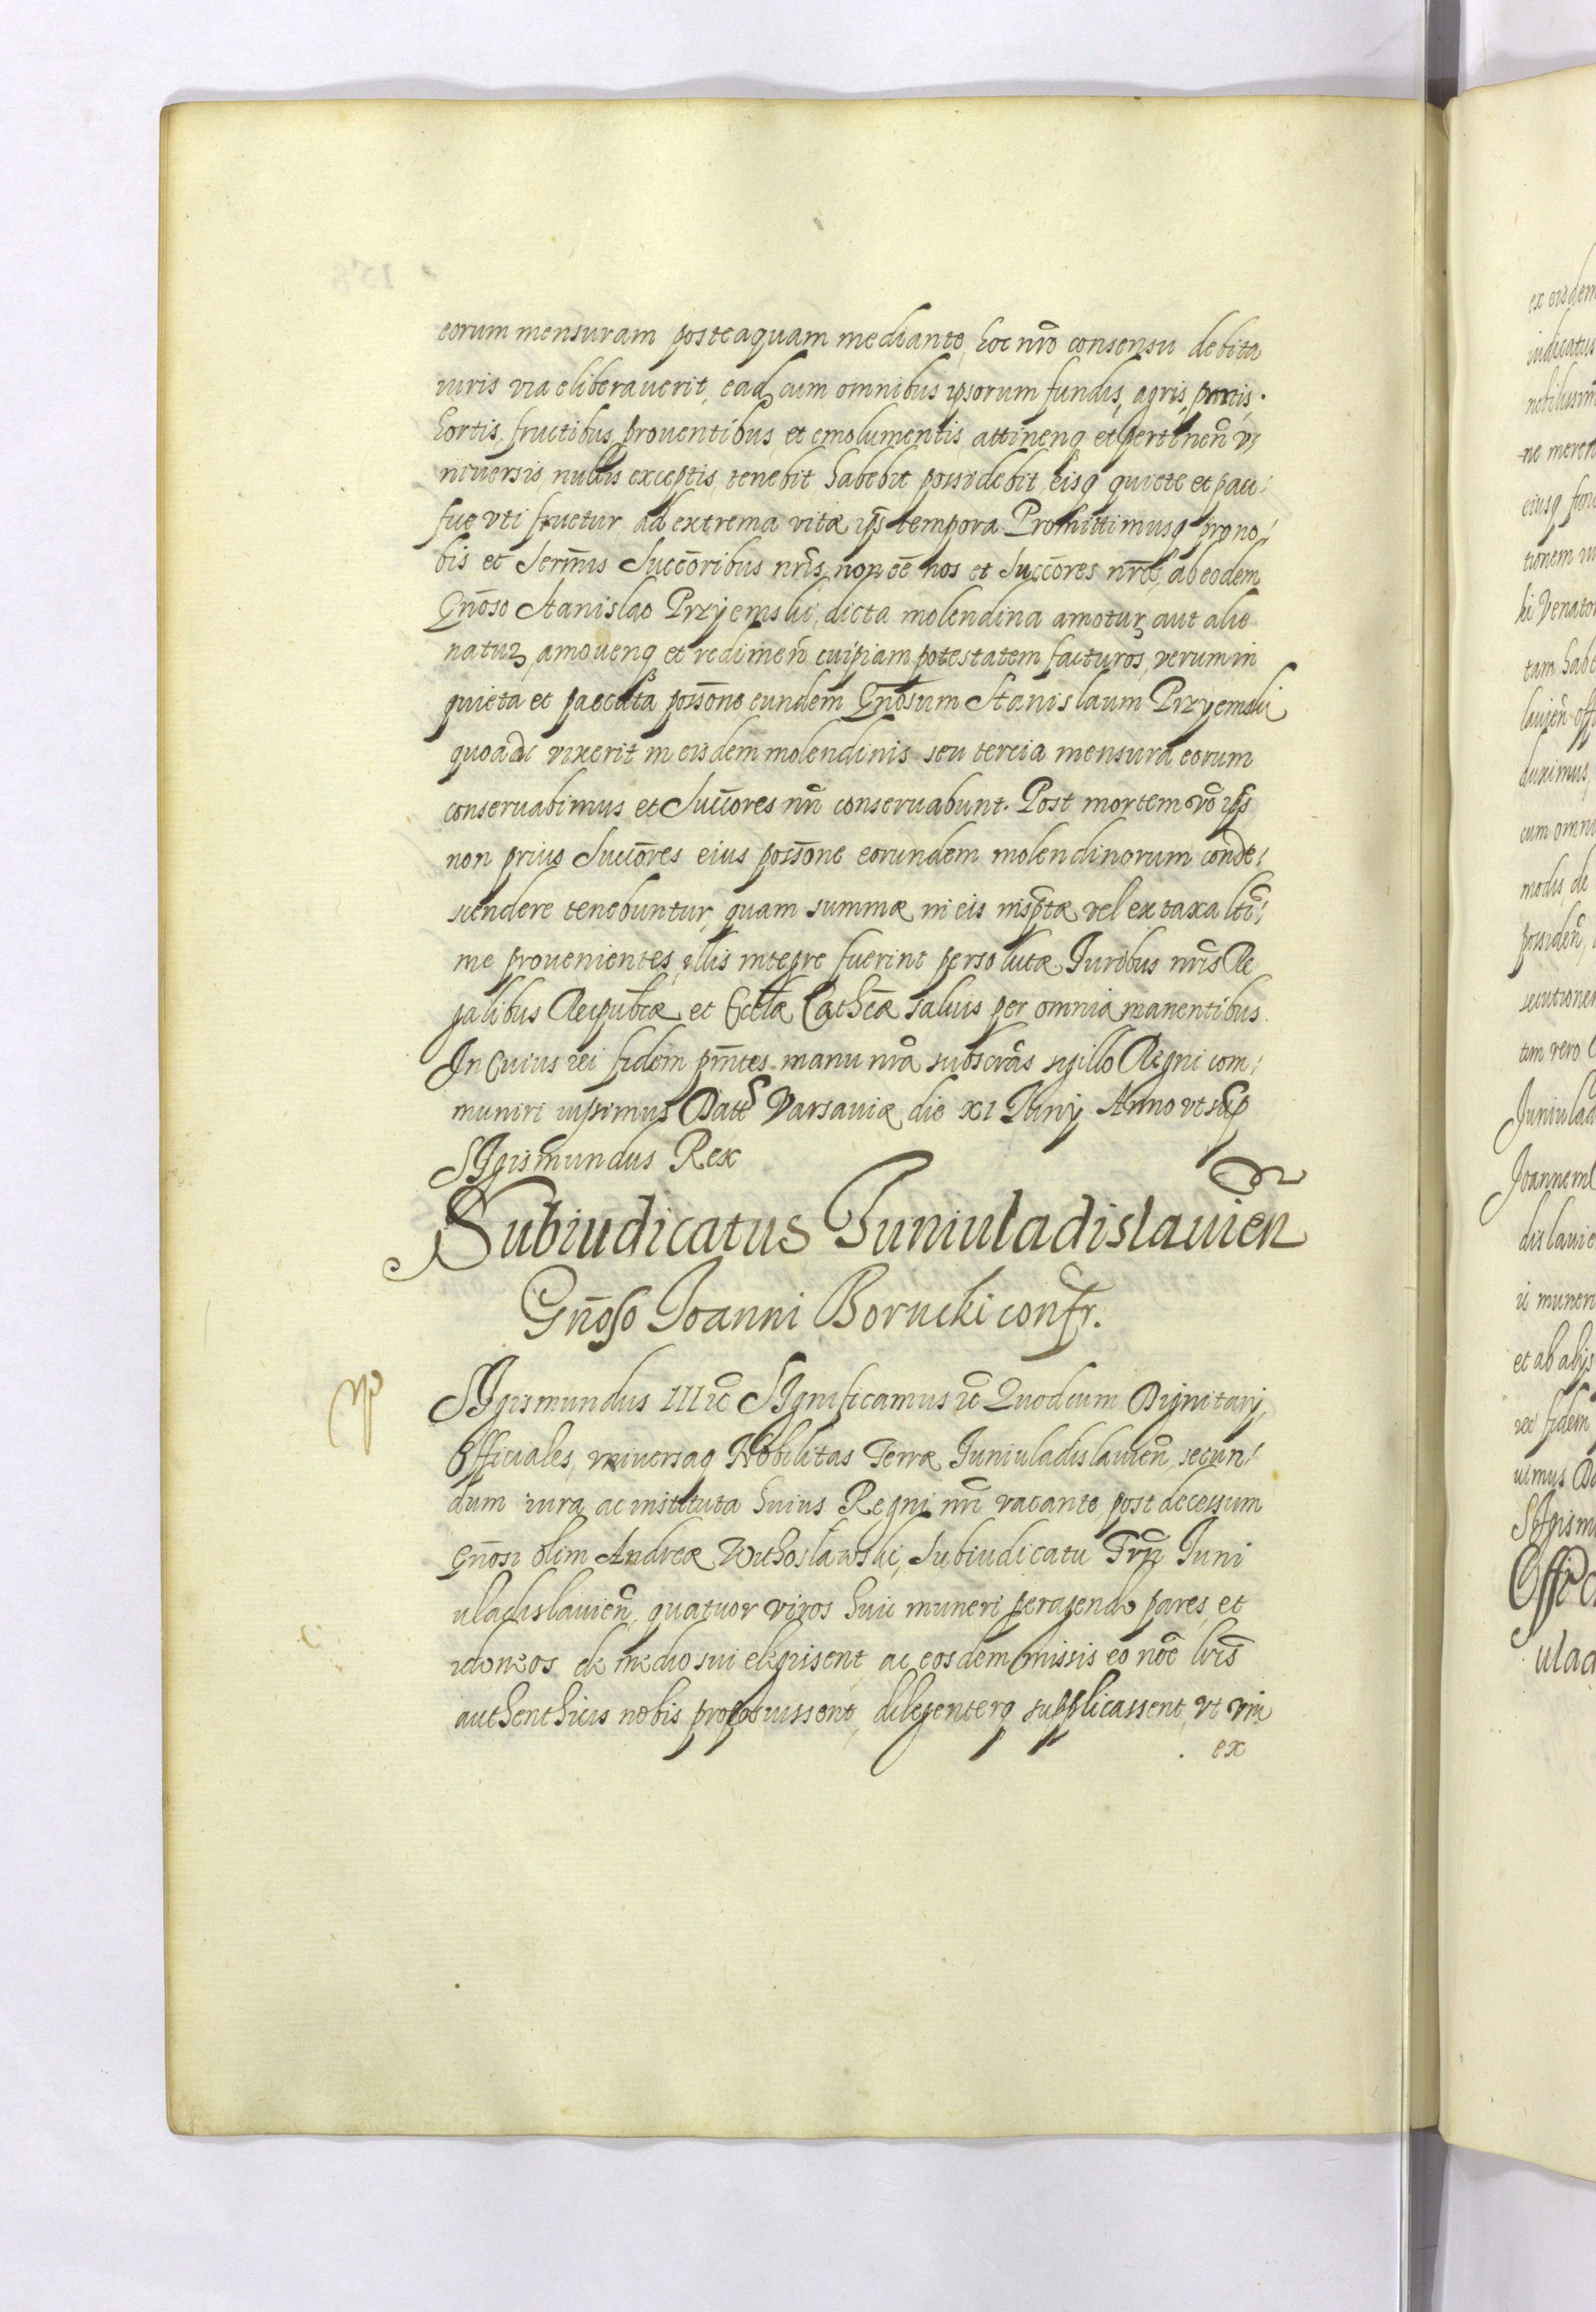 eorum mensuram posteaquam mediante hoc nr̃o consensu debita
iuris via eliberauerit, eadẽ cum omnibus ipsorum fundis, agris, pratis,
hortis, fructibus, prouentibus, et emolumentis, attinenq̃ et pertinen̄ v,
niuersis, nullis exceptis, tenebit habebit possidebit, eisq̃ quiete et paci,
fice vti fruetur ad extrema vitæ ipˢ tempora. Promittimusq̃ pro no,
bis et Serm̃is Succõribus nr̃is, non eẽ nos et Succõres nr̃os, ab eodem
Gñoso Stanislao Przyemski, dicta molendina amotur̨ aut alie
natur̨, amouenq̃ et redimen̄ cuipiam potestatem facturos, verum in
quieta et paccata possõne eundem Gñosum Stanislaum Przyemski
quoadẽ vixerit in eisdem molendinis seu tercia mensura eorum
conseruabimus et Succõres nr̃i conseruabunt. Post mortem võ ipˢ
non prius Succõres eius possõne eorundem molendinorum conde,
scendere tenebuntur, quam summæ in eis inscp̃tæ vel ex taxa lti,
me prouenientes, illis integre fuerint persolutæ. Iuribus nr̃is Re
galibus Reipub̃cæ et Eccl̃æ Cath̃cæ saluis per omnia manentibus.
In Cuius rei fidem pñtes manu nr̃a subscr̃as sigillo Regni com,
muniri iussimus Datt Varsauiæ die XI Iunij Anno vt sup̃
SIgismundus Rex
Subiudicatus Iuniuladislauien̄
Gñoso Ioanni Borucki confr.
SIgismundus III ec̃ SIgnificamus ec̃ Quod cum Dignitarij,
Officiales, vniuersaq̃ Nobilitas Terræ Iuniuladislauien̄, secun,
dum iura ac instituta huius Regni nr̃i vacante post decessum
Gñosi olim Andreæ Withosławski, Subiudicatu Trr̃ Iuni
uladislauien̄, quatuor viros huic muneri peragendo pares, et
idoneos de medio sui elegissent, ac eosdem missis eo nõe lr̃is
authenthicis nobis proposuissent, diligenterq̃ supplicassent, vt vni
ex